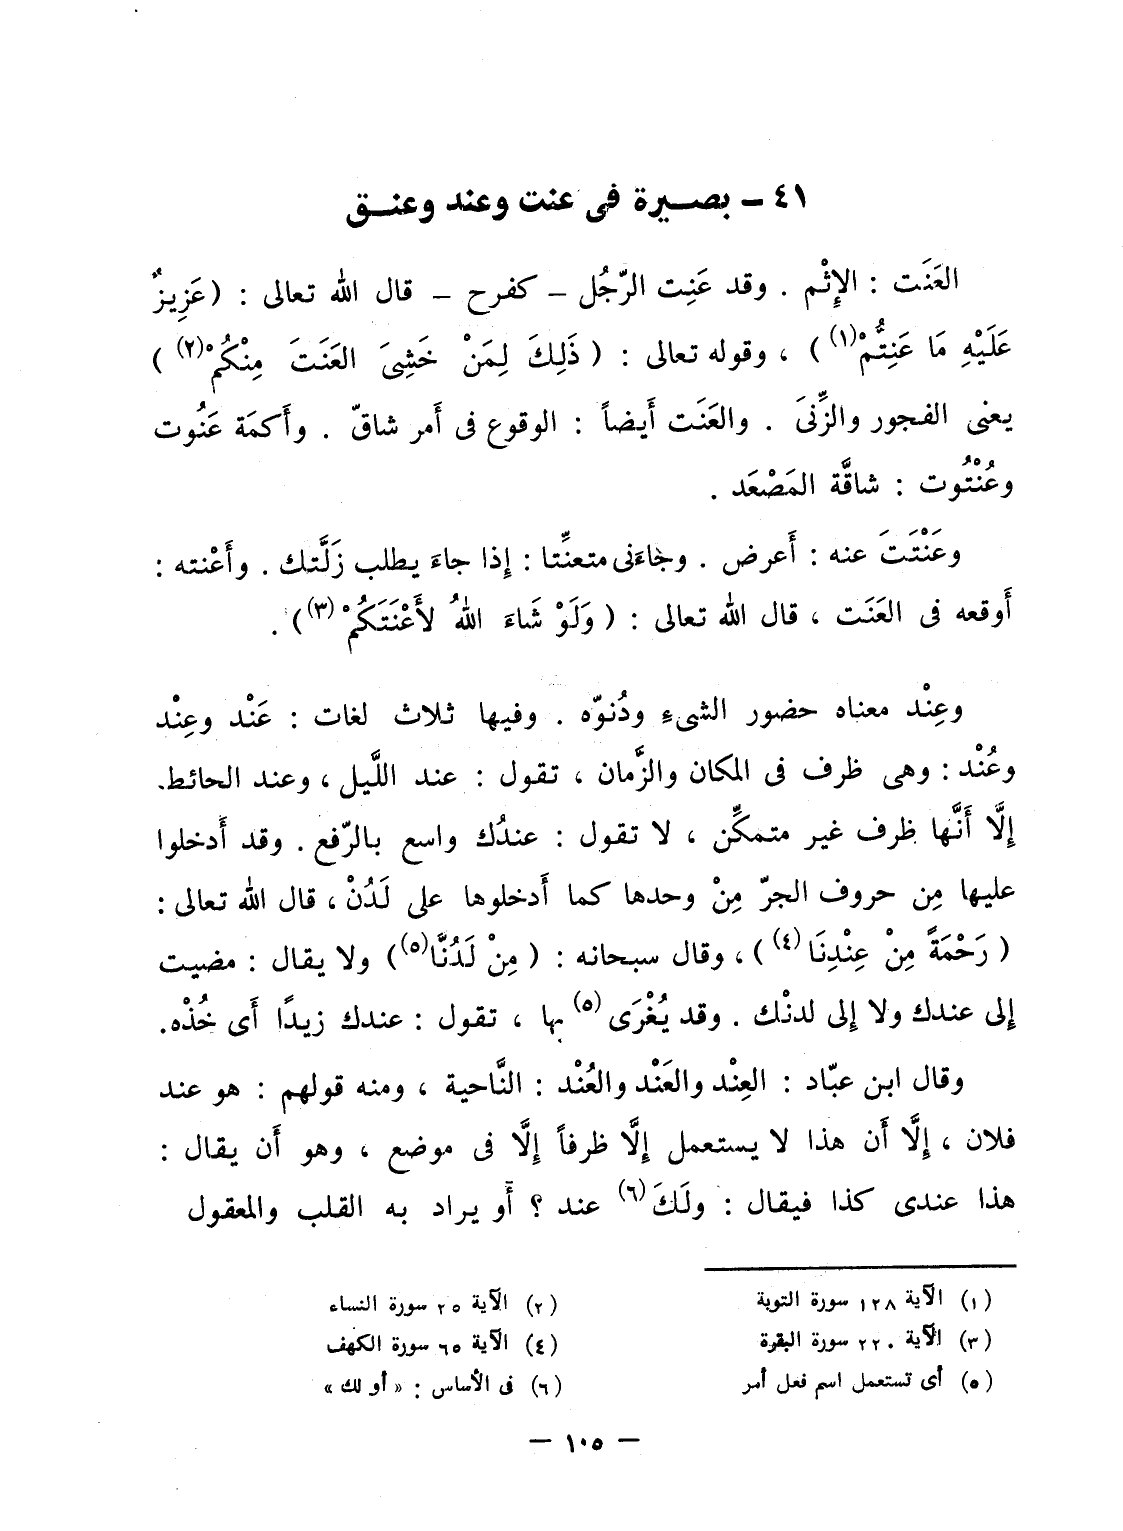 ٤١ – بصيرة فى عنت وعند وعنق
العَنَت : الإِثْم . وقد عَنِت الرّجُل – كفرح – قال الله تعالى : ( عَزِيزٌ
عَلَيْهِ مَا عَنِتُّمْ(١) ) ، وقوله تعالى : ( ذَلِكَ لِمَنْ خَشِىَ العَنَتَ مِنْكُمْ(٢) )
يعنى الفجور والزِّنىَ . والعَنَت أَيضاً : الوقوع فى أَمر شاقّ . وأَكمَة عَنُوت
وعُنْتُوت : شاقَّة المَصْعَد .
وعَنْتَتَ عنه : أَعرض . وجاءَنى متعنِّتا : إِذا جاءَ يطلب زَلَّتك . وأَعْنته :
أَوقعه فى العَنَت ، قال الله تعالى : ( وَلَوْ شَاءَ اللهُ لأَعْنَتَكُمْ(٣) ) .
وعِنْد معناه حضور الشىءِ ودُنوّه . وفيها ثلاث لغات : عَنْد وعِنْد
وعُنْد : وهى ظرف فى المكان والزَّمان ، تقول : عند اللَّيل ، وعند الحائط.
إِلَّا أَنَّها ظرف غير متمكِّن ، لا تقول : عندُك واسع بالرّفع . وقد أَدخلوا
عليها مِن حروف الجرّ مِنْ وحدها كما أَدخلوها على لَدُنْ ، قال الله تعالى :
( رَحْمَةً مِنْ عِنْدِنَا(٤) ) ، وقال سبحانه : ( مِنْ لَدُنَّا(٥) ) ولا يقال : مضيت
إِلى عندك ولا إِلى لدنْك . وقد يُغْرَى(٥) بها ، تقول : عندك زيدًا أَى خُذْه.
وقال ابن عبّاد : العِنْد والعَنْد والعُنْد : النَّاحية ، ومنه قولهم : هو عند
فلان ، إِلَّا أَن هذا لا يستعمل إِلَّا ظرفاً إِلَّا فى موضع ، وهو أَن يقال :
هذا عندى كذا فيقال : ولَكَ(٦) عند ؟ أَو يراد به القلب والمعقول
(١) الآية ١٢٨ سورة التوبة
(٢) الآية ٢٥ سورة النساء
(٣) الآية ٢٢٠ سورة البقرة
(٤) الآية ٦٥ سورة الكهف
(٥) أى تستعمل اسم فعل أمر
(٦) فى الأساس : « أو لك »
— ١٠٥ —